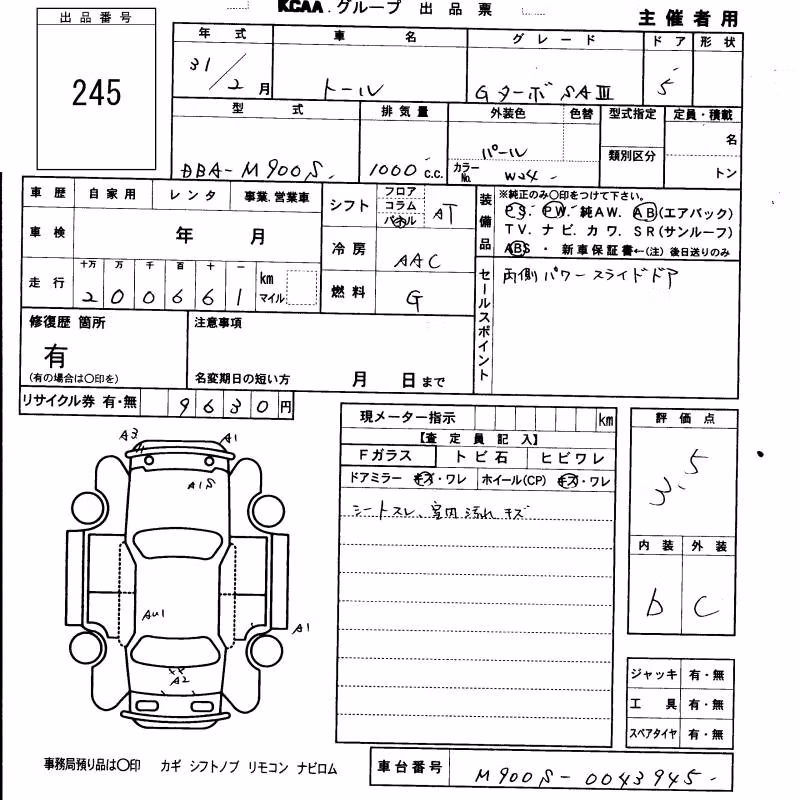 KCAA.グループ 出品票
主催者用
出品番号
245
年式 車名 グレード ドア 形状
31/2月 トール GターボSAⅢ 5
型式 排気量 外装色 色替 型式指定 定員・積載
類別区分 名
DBA-M900S 1000 c.c. パール カラーNo. W24 トン
車歴 自家用 レンタ 事業.営業車
シフト フロア コラム パネル AT
車検 年 月
冷房 AAC
走行 十万 万 千 百 十 一 km マイル
200661
燃料 G
装備品 ※純正のみ〇印をつけて下さい。
PS. PW. 純AW. AB(エアバック)
TV. ナビ. カワ. SR(サンルーフ)
ABS ・ 新車保証書←(注) 後日送りのみ
セールスポイント 両側パワースライドドア
修復歴 箇所
有
(有の場合は〇印を)
注意事項
名変期日の短い方 月 日まで
リサイクル券 有・無 9630円
現メーター指示 km
【査定員記入】
Fガラス トビ石 ヒビワレ
ドアミラー キズ・ワレ ホイール(CP) キズ・ワレ
シートスレ、室内汚れ キズ
評価点
3.5
内装 外装
b C
A3 A1
A1
A1S
AU1
A1
XP
A2
ジャッキ 有・無
工具 有・無
スペアタイヤ 有・無
事務局預り品は〇印 カギ シフトノブ リモコン ナビロム
車台番号 M900S-0043945